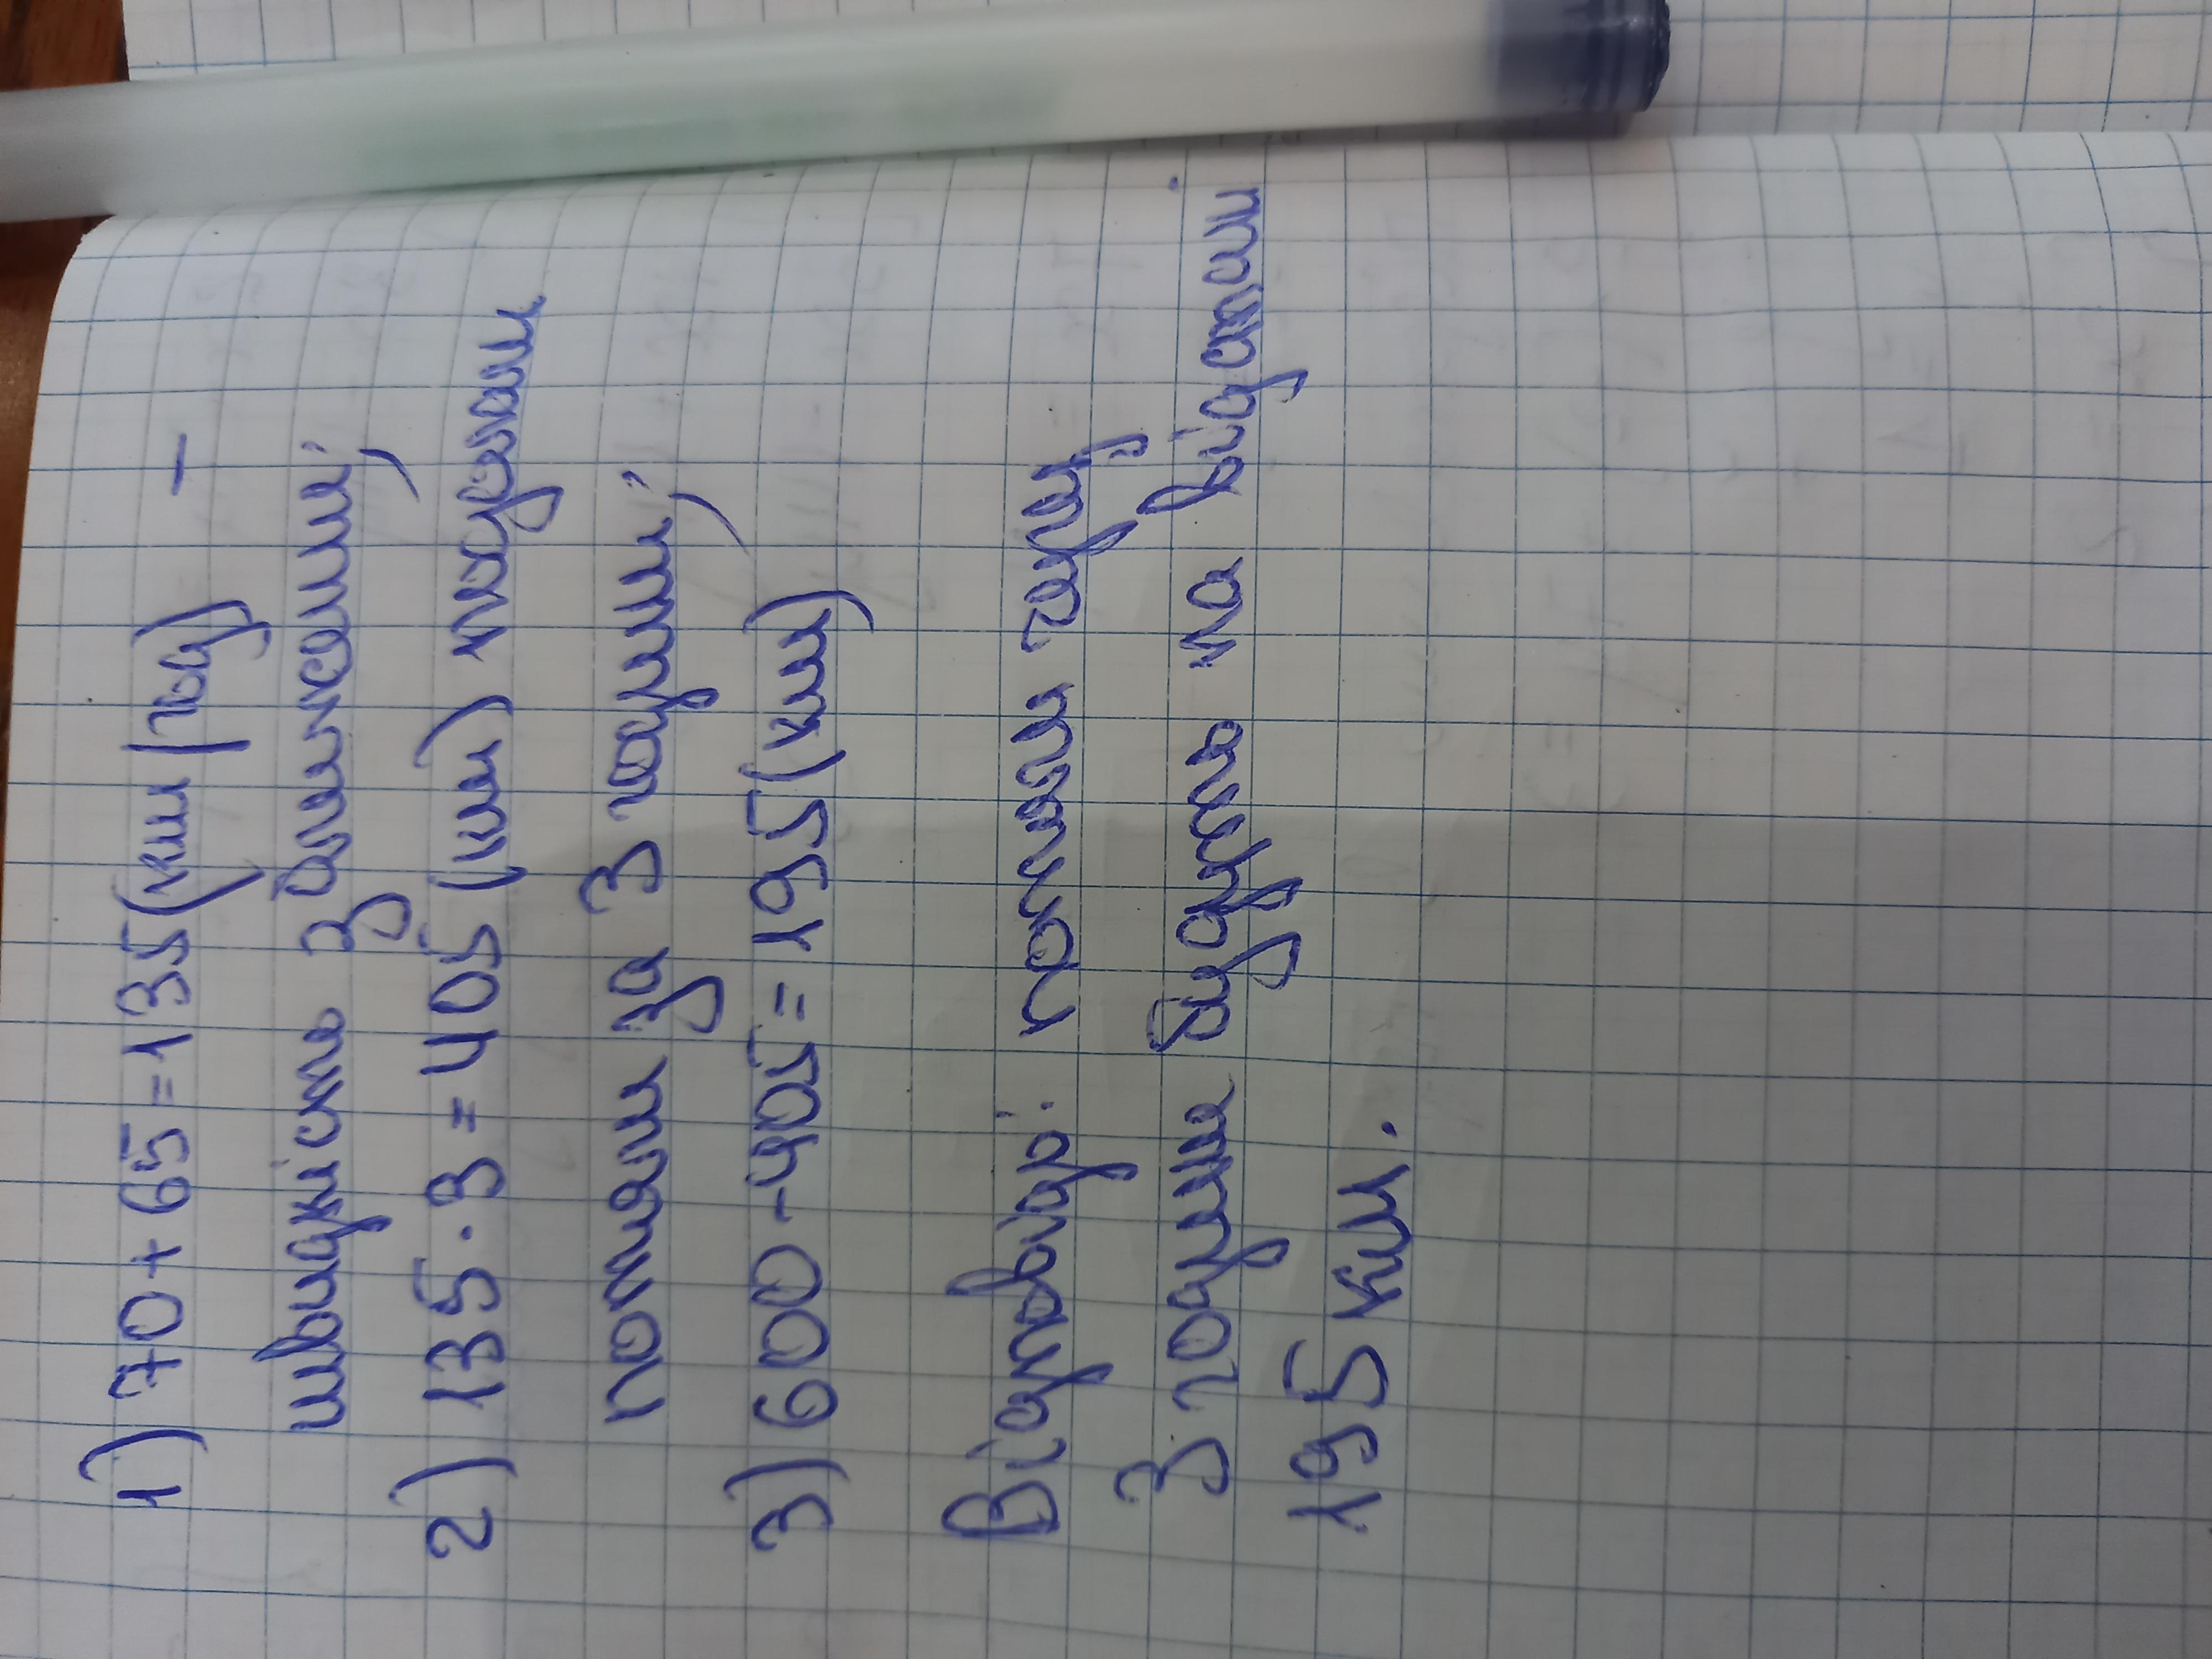 1) 70 + 65 = 135 (км/год) –
швидкість зближення;
2) 135 · 3 = 405 (км) проїхали
потяги за 3 години;
3) 600 - 405 = 195 (км)
Відповідь: потяги через
3 години будуть на відстані
195 км.